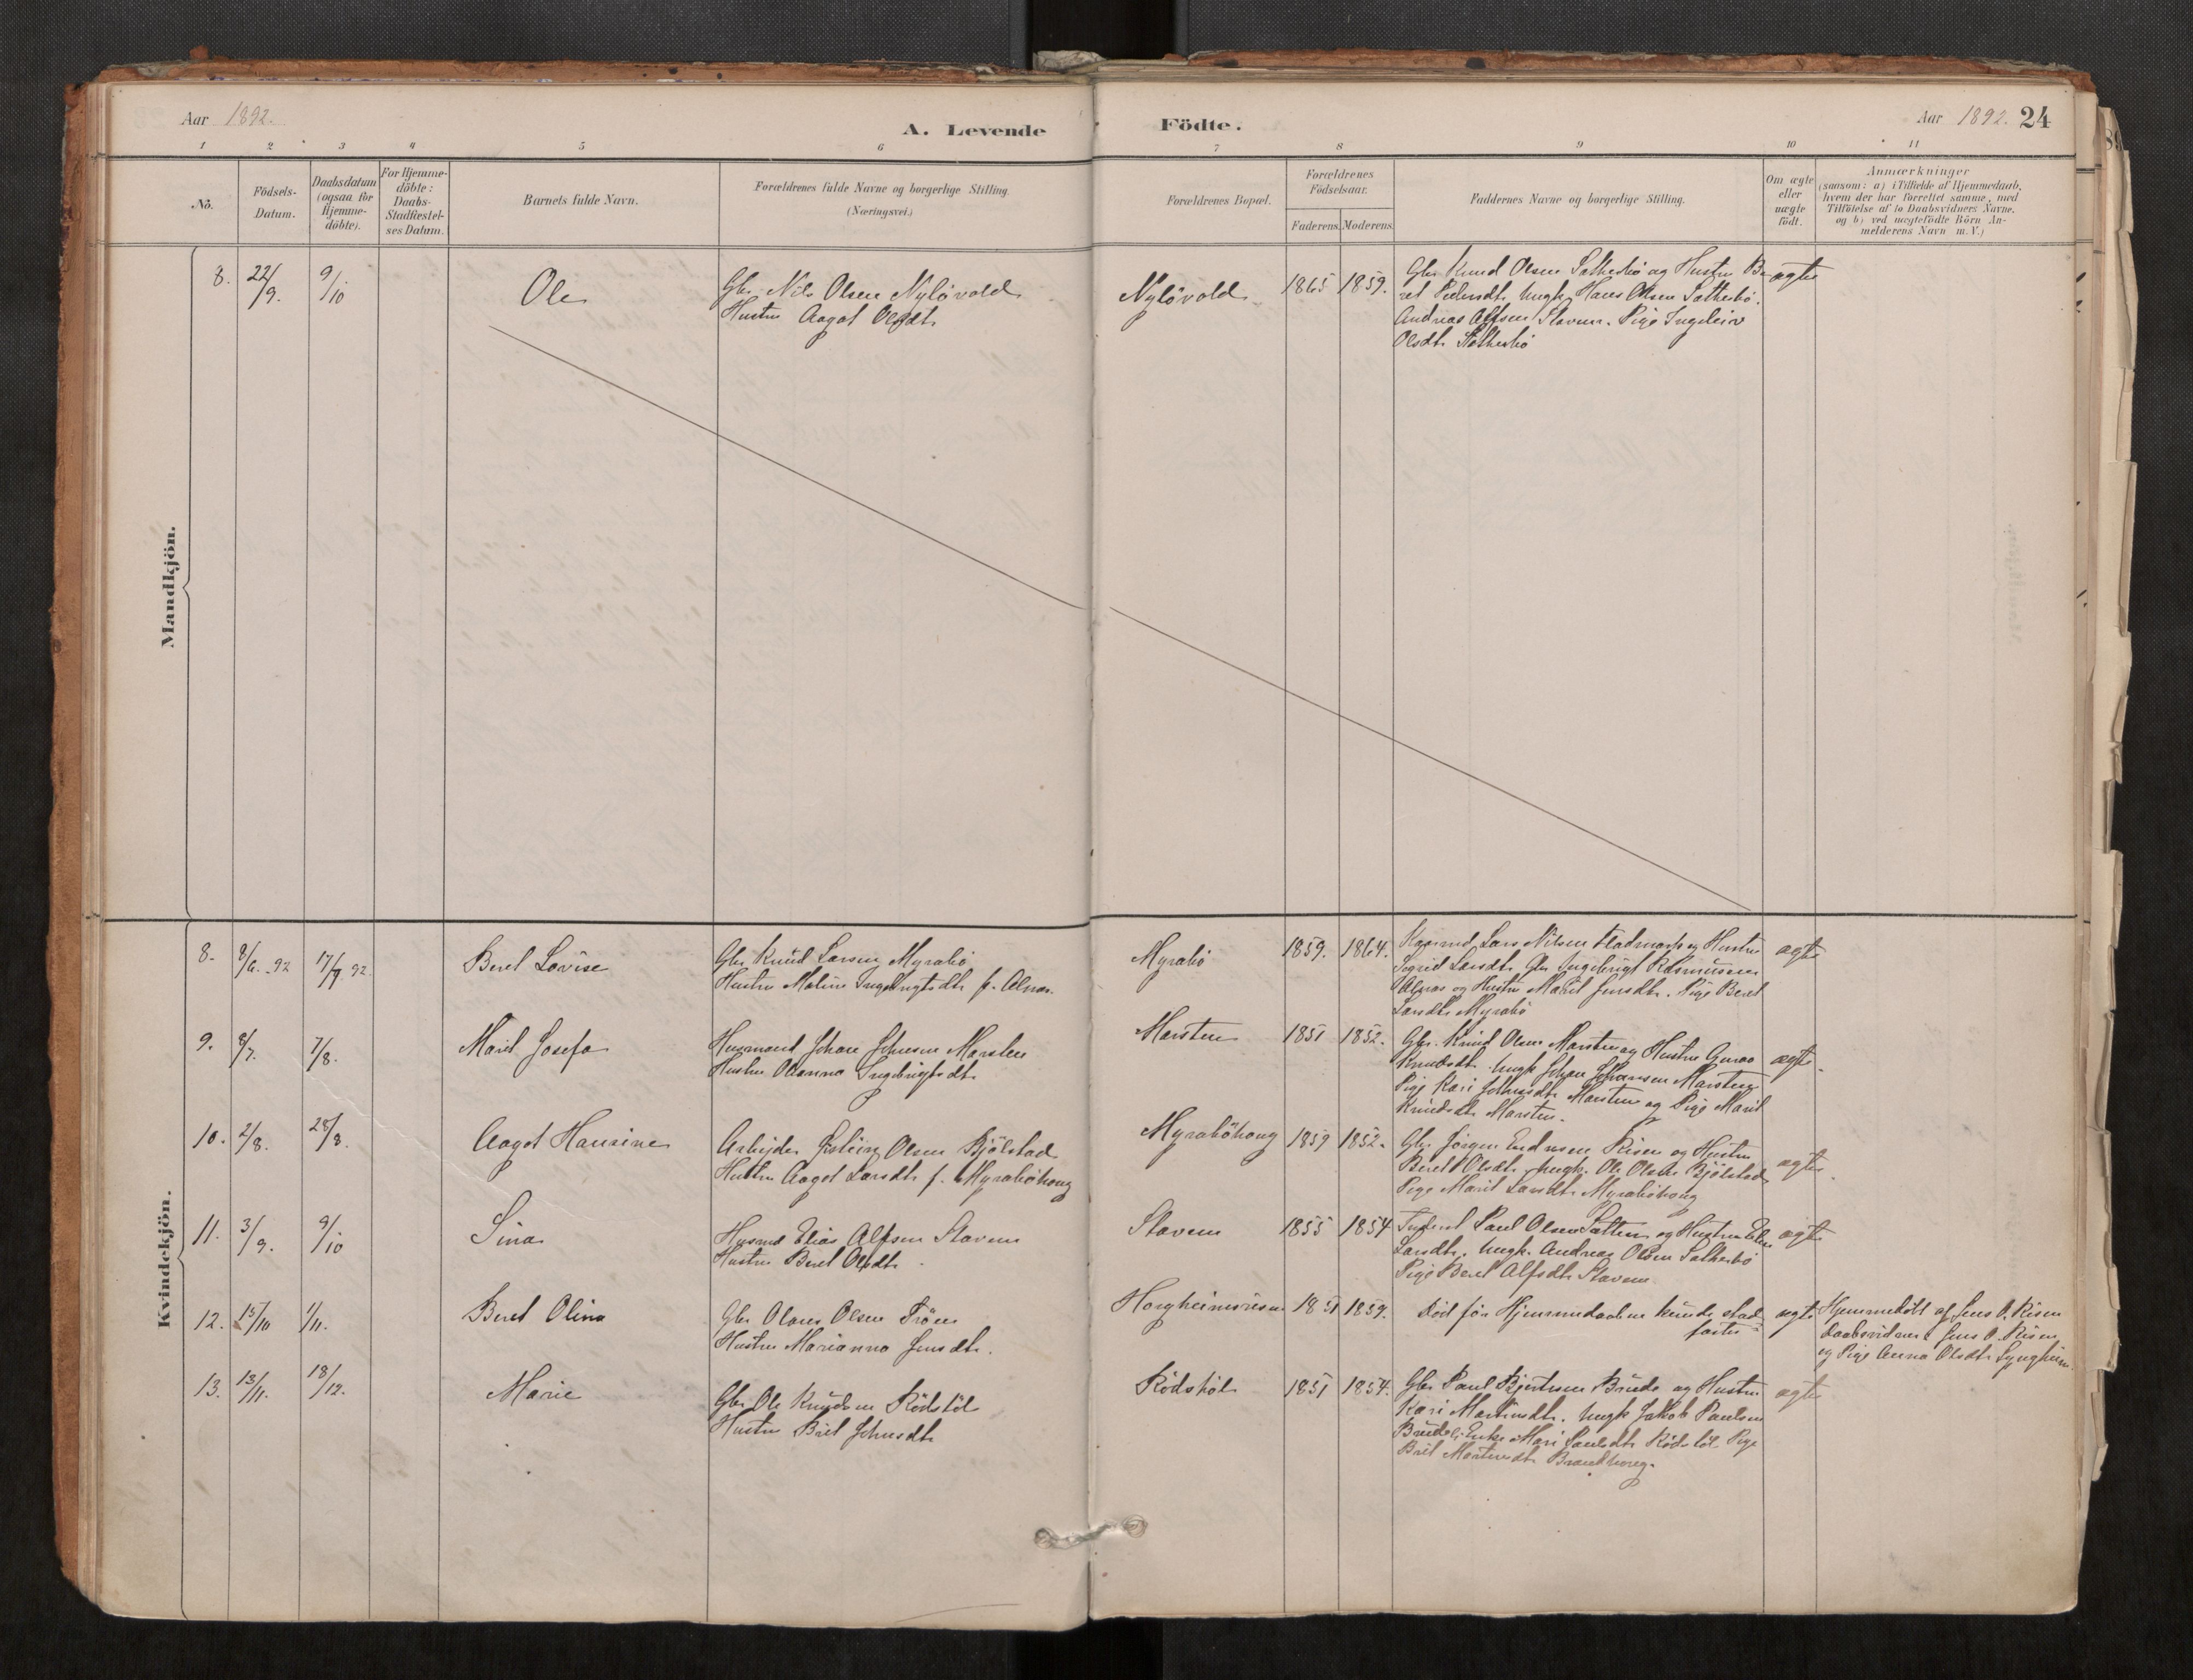 Aar 1892.
A. Levende
Födte.
Aar 1892. 24
1 2 3 4 5 6 7 8 9 10 11
No.
Födsels-
Datum.
Daabsdatum
(ogsaa for
Hjemme-
döbte).
For Hjemme-
döbte:
Daabs-
Stadfæstel-
ses Datum.
Barnets fulde Navn.
Forældrenes fulde Navne og borgerlige Stilling.
(Næringsvei.)
Forældrenes Bopæl.
Forældrenes
Födselsaar.
Faderens. Moderens.
Faddernes Navne og borgerlige Stilling.
Om ægte
eller
uægte
födt.
Anmærkninger
(saasom: a) i Tilfælde af Hjemmedaab,
hvem der har forrettet samme, med
Tilföielse af to Daabsvidners Navne,
og b) ved uægtefödte Börn An-
melderens Navn m. V.)
Mandkjön.
8. 22/9. 9/10 Ole
Gbr. Nils Olsen Nylövold
Hustru Aagot Olsdtr
Nylövold 1865 1859.
Gbr Knud Olsen Sætherbø og Hustru Be-
ret Pedersdtr. Ungk. Hans Olsen Sætherbø.
Andreas Alfsen Stavem. Pige Ingeleiv
Olsdtr Sætherbø
ægte
Kvindekjön.
8. 8/6.-92 17/7. 92 Beret Lovise
Gbr Knud Larsen Myrabø
Hustru Maline Ingebrigtsdtr f. Alnæs.
Myrabø 1859. 1864.
Lars Nilsen Fladmark og Hustru
Sigrid Larsdtr. Gbr Ingebrigt Rasmussen
Alnæs og Hustru Marit Jensdtr. Pige Beret
Larsdtr Myrabø
ægte
9. 8/7. 7/8. Marit Josefa
Husmand Johan Johnsen Marsten
Hustru Oleanna Ingebrigtsdtr
Marsten 1851 1852.
Gbr. Knud Olsen Marsten og Hustru Guroo
Knudsdtr. Ungk Johan Johansen Marsten
Pige Kari Johnsdtr Marsten og Pige Marit
Knudsdtr Marsten.
ægte
10. 2/8. 28/8. Aagot Hansine
Arbejder Østein Olsen Bjölstad
Hustru Aagot Larsdtr f. Myrabøhoug
Myrabøhoug 1859 1852.
Gbr Jörgen Endresen Risen og Hustru
Beret Olsdtr. Ungk. Ole Olsen Bjölstad
Pige Marit Larsdtr Myrabøhoug
ægte
11. 3/9. 9/10 Sina
Husmd Elias Alfsen Stavem
Hustru Beret Olsdtr
Stavem 1855 1854
Paul Olsen Satten og Hustru Elen
Larsdtr. Ungk. Andreas Olsen Sætherbø
Pige Beret Alfsdtr Stavem
ægte
12. 15/10 1/11. Beret Olina
Gbr Olaus Olsen Tröen
Hustru Marianna Jensdtr.
Horgheimsresen 1851 1859.
Död før Hjemmedaaben kunde stad-
fæstes
ægte
Hjemmedöbt af Jens O. Risen
Daabsvidner: Jens O. Risen
og Pige Anna Olsdtr Lyngheim
13. 13/11. 18/12. Marie
Gbr Ole Knudsen Rödstöl
Hustru Brit Johnsdtr
Rödstöl 1851 1854.
Gbr Paul Bjertesen Brude og Hustru
Kari Martinsdtr. Ungk Jakob Paulsen
Brude. Enke Mari Paulsdtr Rödstöl Pige
Brit Martinsdtr
ægte